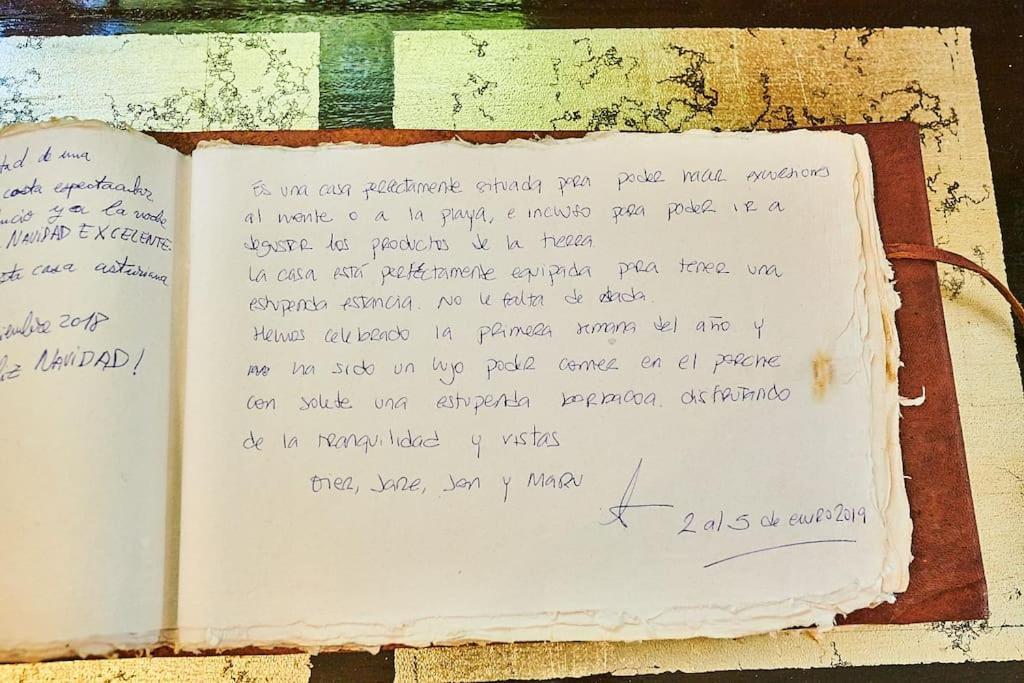 tad de una
costa espectacular
y a la noche
NAVIDAD EXCELENTE.
sta casa asturiana
iembre 2018
liz NAVIDAD!
Es una casa perfectamente situada para poder hacer excursiones
al monte o a la playa, e incluso para poder ir a
degustar los productos de la tierra
La casa está perfectamente equipada para tener una
estupenda estancia. No le falta de nada.
Hemos celebrado la primera semana del año y
ha sido un lujo poder comer en el porche
con solete una estupenda barbacoa. disfrutando
de la tranquilidad y vistas
Oier, Jare, Jon y Maru
2 al 5 de enero 2019